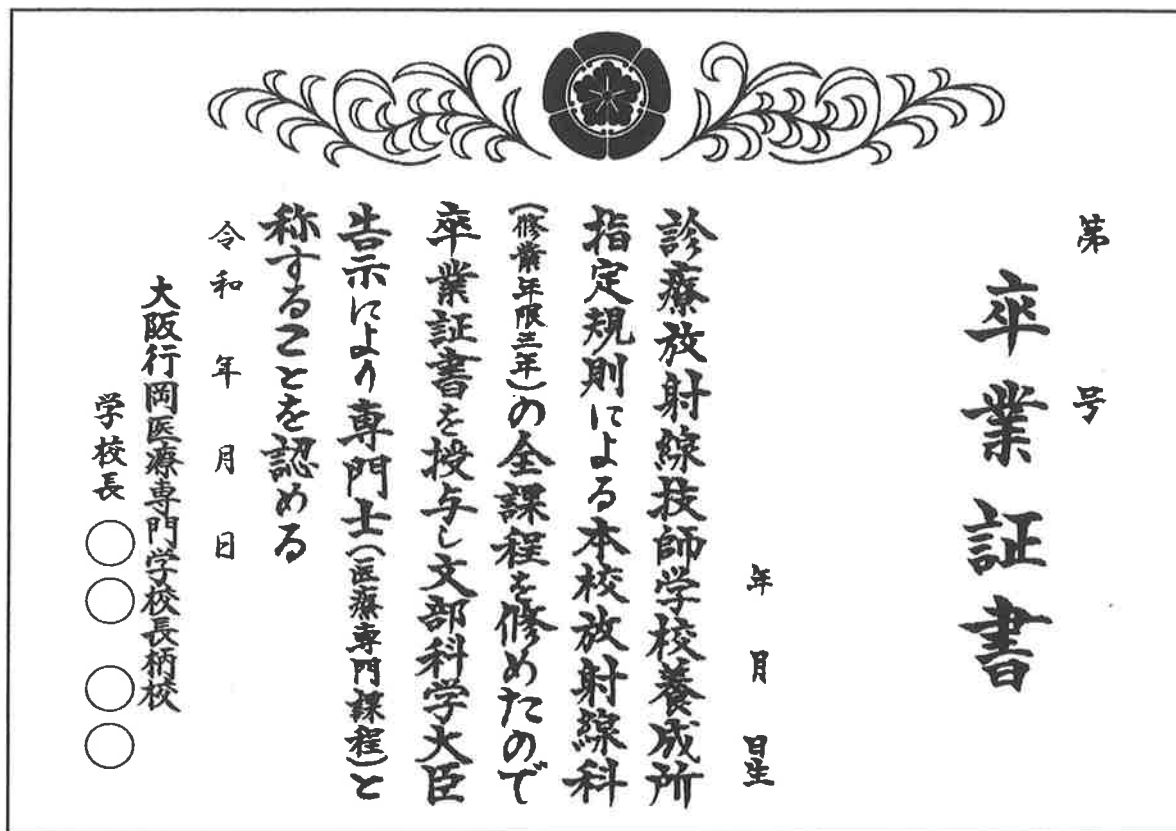 第　号
卒業証書
年　月　日生
診療放射線技師学校養成所
指定規則による本校放射線科
(修業年限三年)の全課程を修めたので
卒業証書を授与し文部科学大臣
告示により専門士(医療専門課程)と
称することを認める
令和　年　月　日
大阪行岡医療専門学校長柄校
学校長　○○　○○